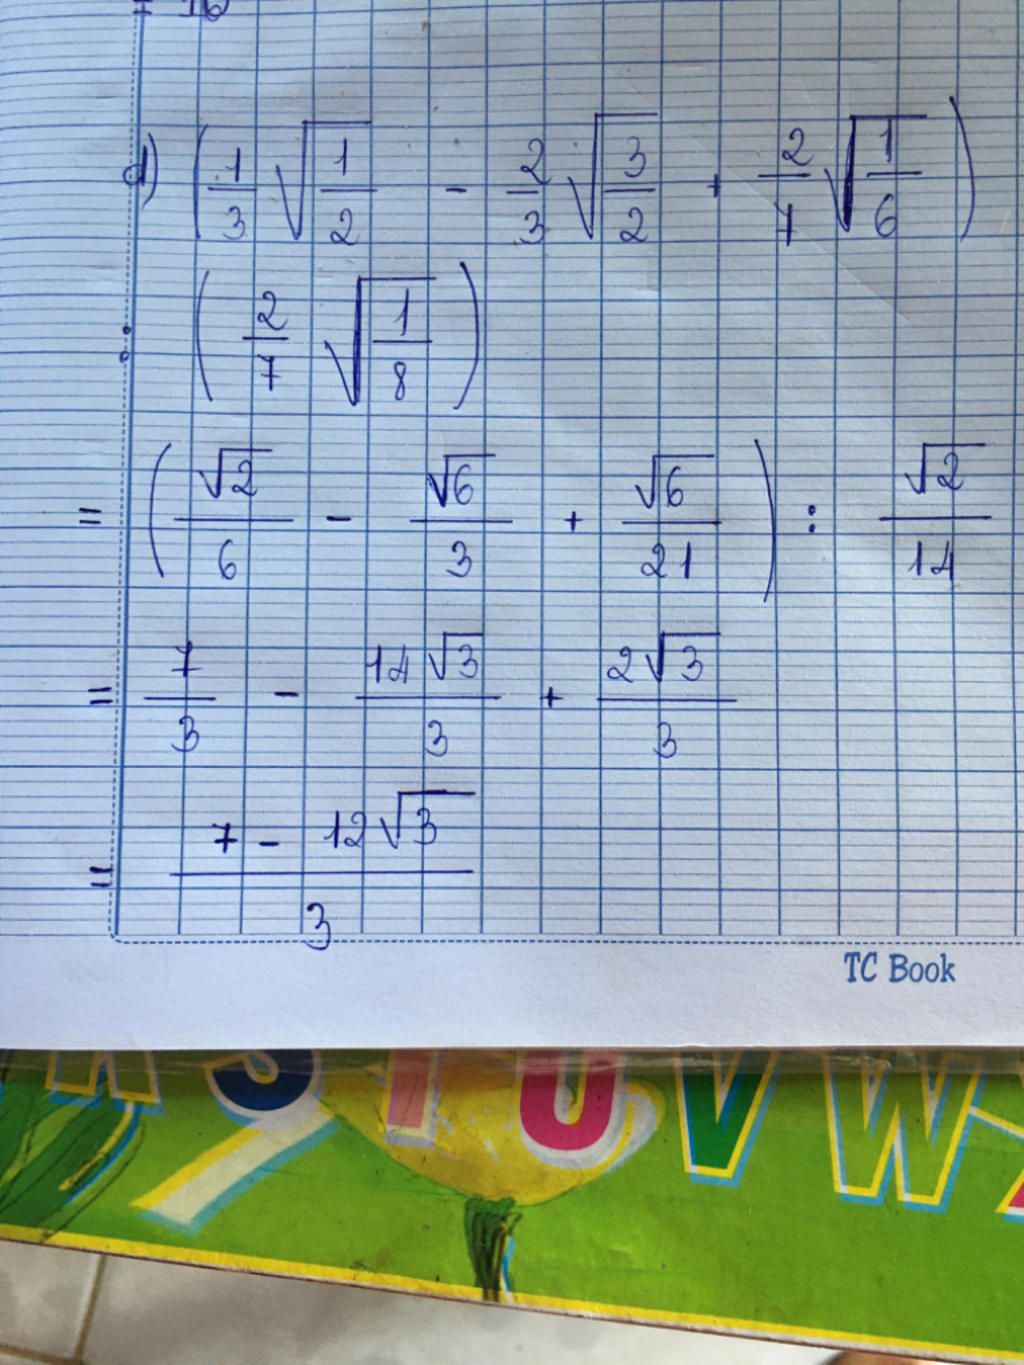 = 16
d) (1/3 √(1/2) - 2/3 √(3/2) + 2/7 √(1/6))
: (2/7 √(1/8))
= (√2/6 - √6/3 + √6/21) : √2/14
= 7/3 - 14√3/3 + 2√3/3
= (7 - 12√3)/3
TC Book
STUVW